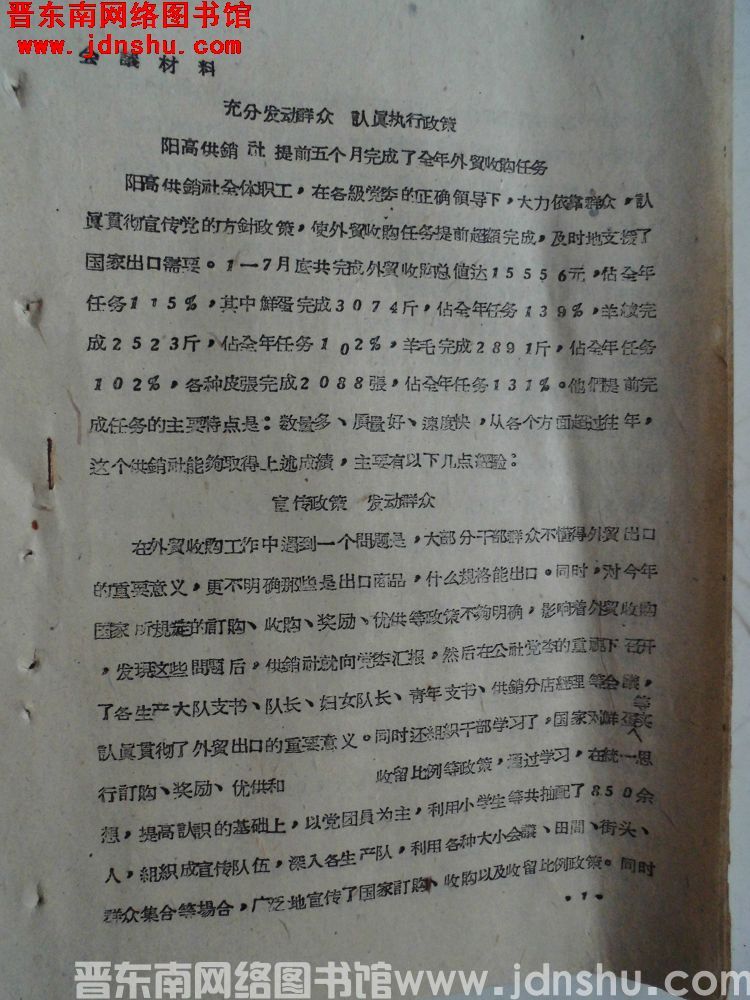 晋东南网络图书馆
www.jdnshu.com
会議材料
充分发动群众 認真执行政策
阳高供銷社提前五个月完成了全年外貿收购任务
阳高供銷社全体职工，在各級党委的正确領导下，大力依靠群众，認
眞貫彻宣传党的方針政策，使外貿收购任务提前超額完成，及时地支援了
国家出口需要。1—7月底共完成外貿收购总值达15556元，佔全年
任务115%，其中鮮蛋完成3074斤，佔全年任务139%，羊絨完
成2523斤，佔全年任务102%，羊毛完成2891斤，佔全年任务
102%，各种皮張完成2088張，佔全年任务131%。他們提前完
成任务的主要特点是：数量多、质量好、速度快，从各个方面超过往年，
这个供銷社能夠取得上述成績，主要有以下几点經验：
宣传政策 发动群众
在外貿收购工作中遇到一个問題是，大部分干部群众不懂得外貿出口
的重要意义，更不明确那些是出口商品，什么规格能出口。同时，对今年
国家所规定的訂购、收购、奖励、优供等政策不夠明确，影响着外貿收购
，发现这些問題后，供銷社就向党委汇报，然后在公社党委的重視下召开
了各生产大队支书、队长、妇女队长、青年支书、供銷分店經理等会議，
認眞貫彻了外貿出口的重要意义。同时还組织干部学习了，国家对鮮蛋等实
行訂购、奖励、优供和 收留比例等政策，通过学习，在統一思
想，提高認識的基础上，以党团員为主，利用小学生等共抽配了850余
人，組織成宣传队伍，深入各生产队，利用各种大小会議、田間、街头、
群众集合等場合，广泛地宣传了国家訂购、收购以及收留比例政策。同时
·1·
晋东南网络图书馆www.jdnshu.com